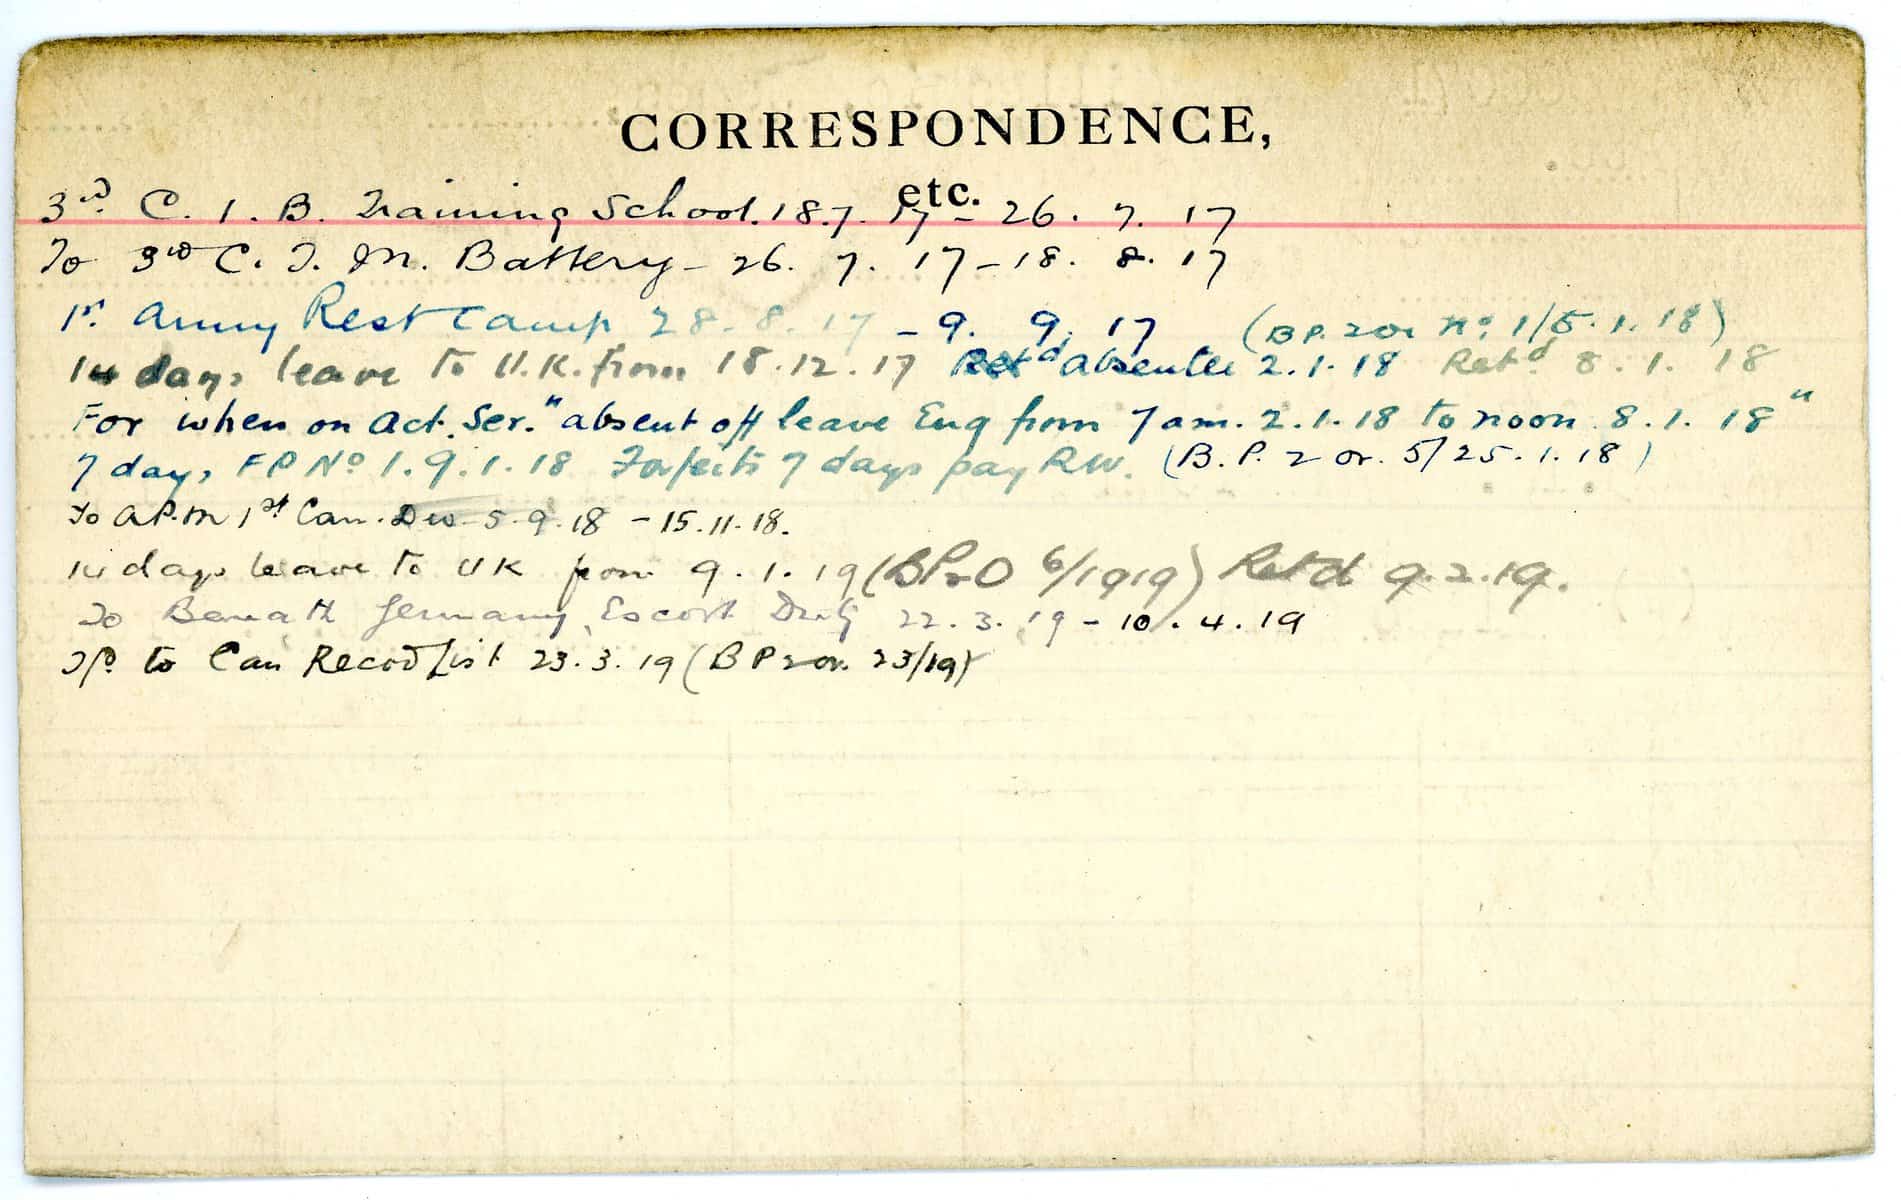 CORRESPONDENCE,
etc.
3rd. C. I. B. Training School. 18.7. 17 - 26. 7. 17
To 3rd C. T. M. Battery - 26. 7. 17 - 18. 8. 17
1st. Army Rest Camp 28. 8. 17 - 9. 9. 17 (B P. 2 or No. 1/5. 1. 18)
14 days leave to U.K. from 18.12.17 absentee 2.1.18 Retd 8. 1. 18
For when on Act. Ser. "absent off leave Eng from 7 am. 2.1.18 to noon 8.1. 18"
7 days FP No 1. 9. 1. 18 Forfeits 7 days pay RW. (B. P. 2 or. 5/25.1.18)
To A.P.M 1st Can. Div 5.9.18 - 15.11.18.
14 days leave to UK from 9. 1. 19 (BP2O 6/1919) Retd 9.2.19.
To Germany, Escort Duty 22. 3. 19 - 10. 4. 19
to Can Record List 23. 3. 19 (B P 2 or. 23/19)